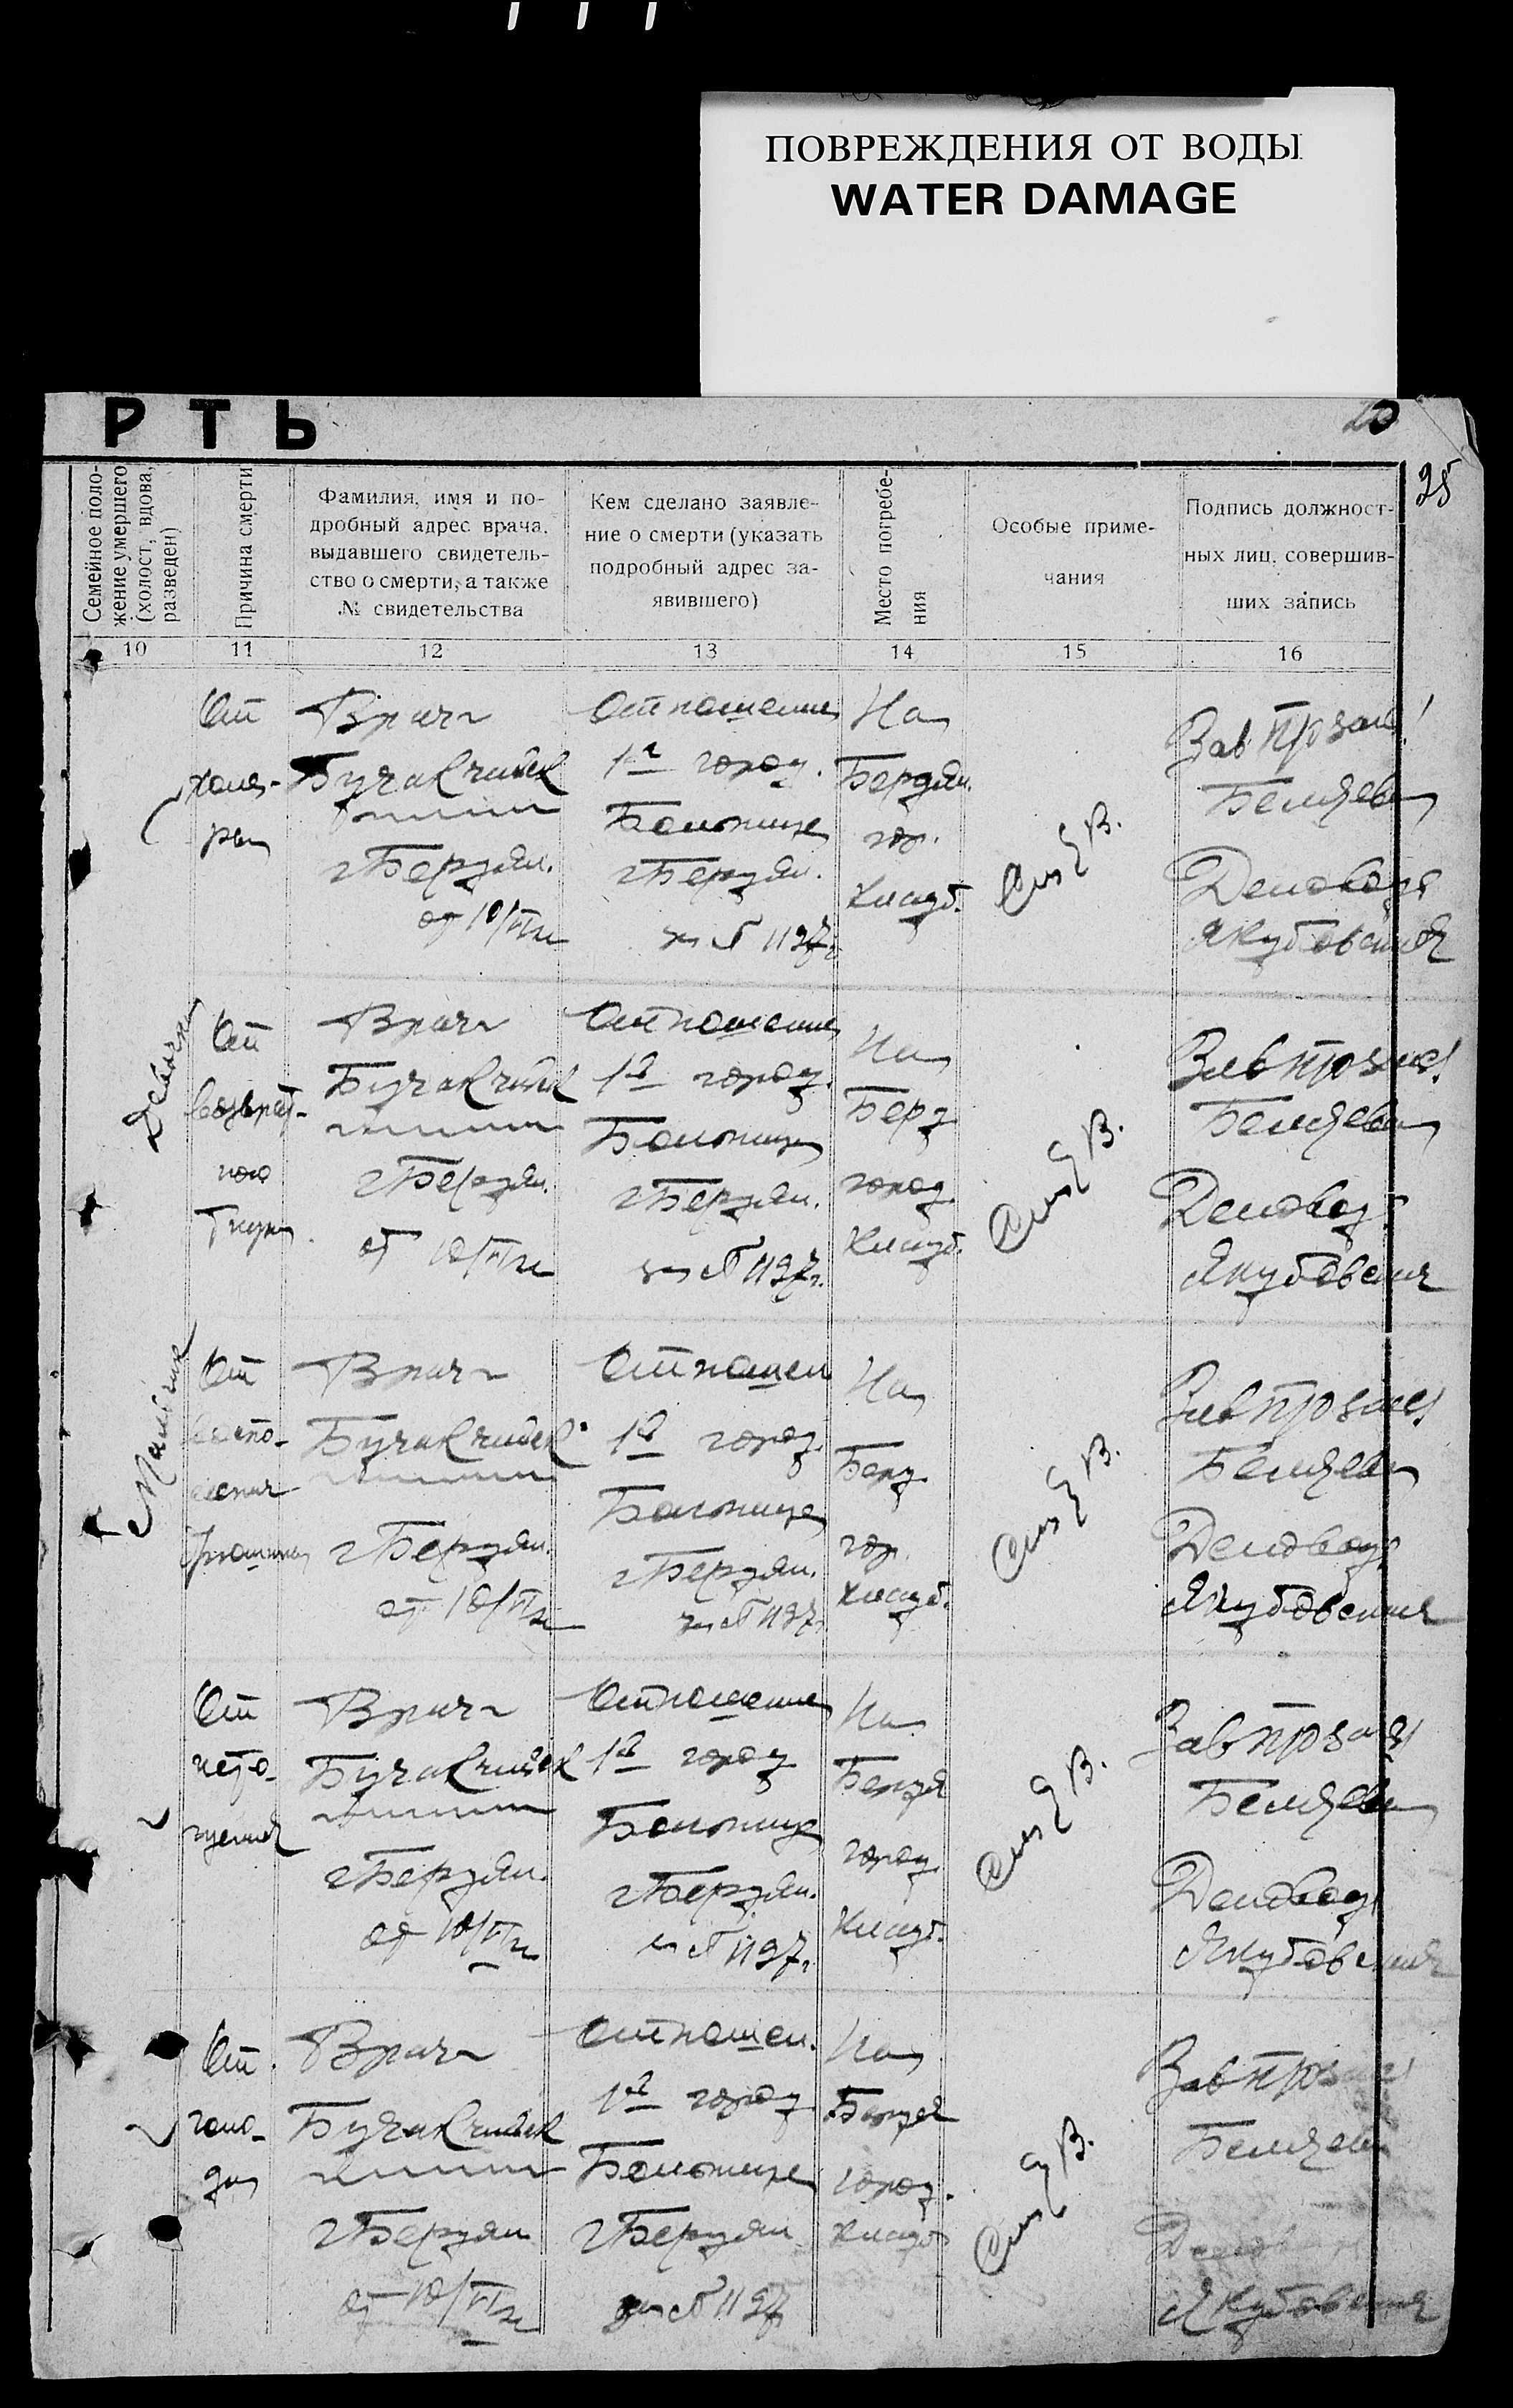 ПОВРЕЖДЕНИЯ ОТ ВОДЫ
WATER DAMAGE
РТЬ
20
25
Семейное поло-
жение умершего
(холост, вдова,
разведен)
Причина смерти
Фамилия, имя и по-
дробный адрес врача,
выдавшего свидетель-
ство о смерти, а также
№ свидетельства
Кем сделано заявле-
ние о смерти (указать
подробный адрес за-
явившего)
Место погребе-
ния
Особые приме-
чания
Подпись должност-
ных лиц, совершив-
ших запись
10
11
12
13
14
15
16
От
холе-
ры
Врач
Бучакчийск
г Бердян.
от 10/VI
Отношение
1й город.
Больница
г Бердян.
за № 1197
На
Бердян.
гор.
Кладб.
Зав
Беляева
Деловод
Якубовская
Девочка
От
возврат-
ного
тифа
Врач
Бучакчийск
г Бердян.
от 10/VI
Отношение
1й город.
Больница
г Бердян.
за № 1197
На
Берд
город
Кладб.
Зав
Беляева
Деловод
Якубовская
Мальчик
От
воспа-
ления
Врач
Бучакчийск
г Бердян.
от 10/VI
Отношен
1й город.
Больница
г Бердян.
за № 1197
На
Берд
гор.
Кладб.
Зав
Беляева
Деловод
Якубовская
От
исто-
щения
Врач
Бучакчийск
г Бердян.
от 10/VI
Отношение
1й город
Больница
г Бердян.
за № 1197
На
Бердя
город
Кладб.
Зав
Беляева
Деловод
Якубовская
От
голо-
да
Врач
Бучакчийск
г Бердян
от 10/VI
Отношен.
1й город
Больница
г Бердян
за № 1197
На
Бердя
город.
Кладб
Зав
Беляева
Якубовская